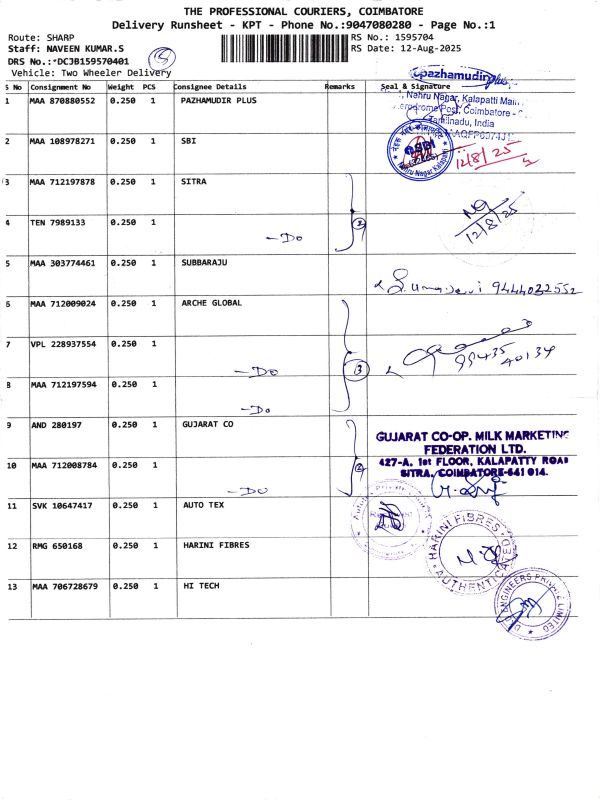 THE PROFESSIONAL COURIERS, COIMBATORE
Delivery Runsheet - KPT - Phone No.:9047080280 - Page No.:1
Route: SHARP
RS No.: 1595704
Staff: NAVEEN KUMAR.S
RS Date: 12-Aug-2025
DRS No.:*DCJB159570401
Vehicle: Two Wheeler Delivery
S No Consignment No Weight PCS Consignee Details Remarks Seal & Signature
1 MAA 870880552 0.250 1 PAZHAMUDIR PLUS
pazhamudir plus
Nehru Nagar, Kalapatti Main
Aerodrome Post, Coimbatore -
Tamilnadu, India
2 MAA 108978271 0.250 1 SBI
SBI
Nehru Nagar Kalapatti
12/8/25
3 MAA 712197878 0.250 1 SITRA
4 TEN 7989133 0.250 1
-Do
2
12/8/25
5 MAA 303774461 0.250 1 SUBBARAJU
9444022552
6 MAA 712009024 0.250 1 ARCHE GLOBAL
7 VPL 228937554 0.250 1
-Do
3
99435
40134
8 MAA 712197594 0.250 1
-Do
9 AND 280197 0.250 1 GUJARAT CO
GUJARAT CO-OP. MILK MARKETING
FEDERATION LTD.
427-A, 1st FLOOR, KALAPATTY ROAD
SITRA, COIMBATORE-641 014.
10 MAA 712008784 0.250 1
-DO
2
11 SVK 10647417 0.250 1 AUTO TEX
12 RMG 650168 0.250 1 HARINI FIBRES
HARINI FIBRES
AUTHENTICATED
13 MAA 706728679 0.250 1 HI TECH
ENGINEERS PRIVATE LIMITED